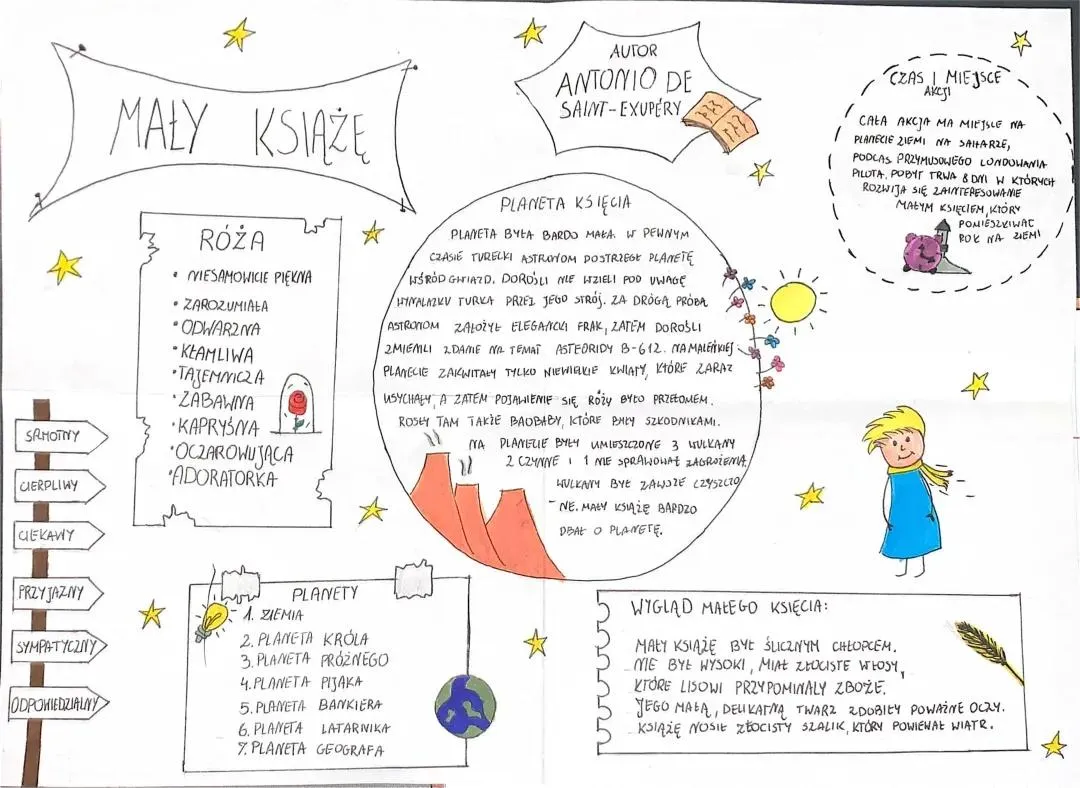 MAŁY KSIĄŻĘ
AUTOR
ANTONIO DE
SAINT-EXUPÉRY
CZAS I MIEJSCE
AKCJI
CAŁA AKCJA MA MIEJSCE NA
PLANECIE ZIEMI NA SAHARZE,
PODCAS PRZYMUSOWEGO LONDOWANIA
PILOTA. POBYT TRWA 8 DNI W KTÓRYCH
ROZWIJA SIĘ ZAINTERESOWANIE
MAŁYM KSIĘCIEM, KTÓRY
POMIESZKIWAĆ
ROK NA ZIEMI
RÓŻA
• NIESAMOWICIE PIĘKNA
• ZAROZUMIAŁA
• ODWARZNA
• KŁAMLIWA
• TAJEMNICZA
• ZABAWNA
• KAPRYŚNA
• OCZAROWUJĄCA
• ADORATORKA
PLANETA KSIĘCIA
PLANETA BYŁA BARDO MAŁA. W PEWNYM
CZASIE TURECKI ASTRONOM DOSTRZEGŁ PLANETĘ
WŚRÓD GWIAZD. DOROŚLI NIE WZIELI POD UWAGĘ
WYNALAZKU TURKA PRZEZ JEGO STRÓJ. ZA DRÓGĄ PRÓBĄ
ASTRONOM ZAŁOŻYŁ ELEGANCKI FRAK, ZATEM DOROŚLI
ZMIENILI ZDANIE NA TEMAT ASTEORIDY B-612. NA MALEŃKIEJ
PLANECIE ZAKWITAŁY TYLKO NIEWIELKIE KWIATY, KTÓRE ZARAZ
USYCHAŁY, A ZATEM POJAWIENIE SIĘ RÓŻY BYŁO PRZEŁOMEM.
ROSŁY TAM TAKŻE BAOBABY, KTÓRE BYŁY SZKODNIKAMI.
NA PLANECIE BYŁY UMIESZCZONE 3 WULKANY
2 CZYNNE I 1 NIE SPRAWOWAŁ ZAGROŻENIA.
WULKANY BYŁ ZAWSZE CZYSZCZO
- NE. MAŁY KSIĄŻĘ BARDZO
DBAŁ O PLANETĘ.
SAMOTNY
CIERPLIWY
CIEKAWY
PRZYJAZNY
SYMPATYCZNY
ODPOWIEDZIALNY
PLANETY
1. ZIEMIA
2. PLANETA KRÓLA
3. PLANETA PRÓŻNEGO
4. PLANETA PIJAKA
5. PLANETA BANKIERA
6. PLANETA LATARNIKA
7. PLANETA GEOGRAFA
WYGLĄD MAŁEGO KSIĘCIA:
MAŁY KSIĄŻĘ BYŁ ŚLICZNYM CHŁOPCEM.
NIE BYŁ WYSOKI, MIAŁ ZŁOCISTE WŁOSY,
KTÓRE LISOWI PRZYPOMINAŁY ZBOŻE.
JEGO MAŁĄ, DELIKATNĄ TWARZ ZDOBIŁY POWAŻNE OCZY.
KSIĄŻĘ NOSIŁ ZŁOCISTY SZALIK, KTÓRY POWIEWAŁ WIATR.